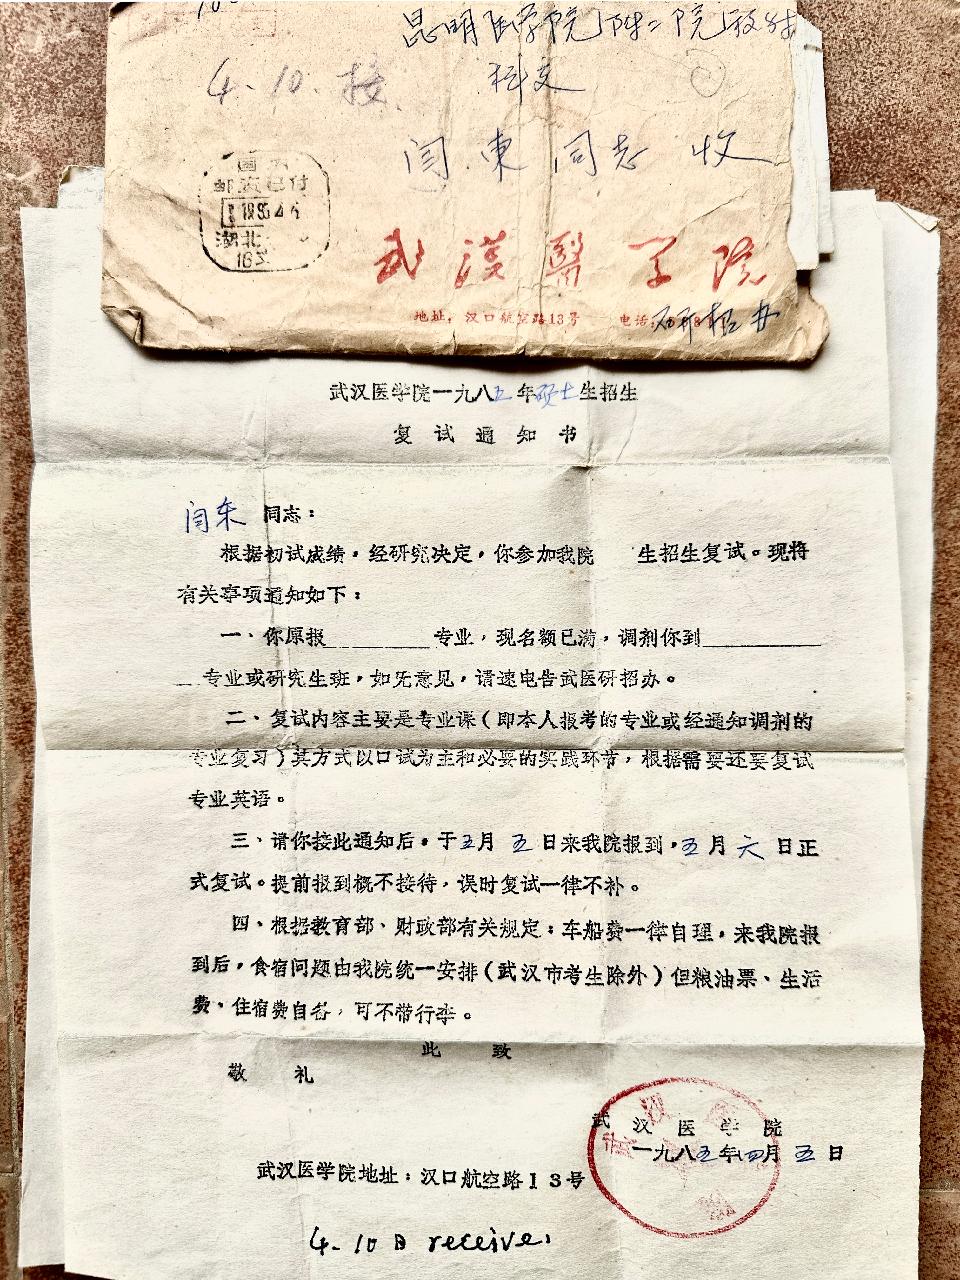 昆明医学院附二院放射
科交
4.10.接
闫東同志 收
邮资已付
湖北
武漢醫学院
地址：汉口航空路13号 电话：
研招办
武汉医学院一九八五年硕士生招生
复试通知书
闫东 同志：
根据初试成绩，经研究决定，你参加我院 生招生复试。现将
有关事项通知如下：
一、你原报________专业，现名额已满，调剂你到________
_专业或研究生班，如无意见，请速电告武医研招办。
二、复试内容主要是专业课（即本人报考的专业或经通知调剂的
专业复习）其方式以口试为主和必要的实践环节，根据需要还要复试
专业英语。
三、请你接此通知后，于五月五日来我院报到，五月六日正
式复试。提前报到概不接待，误时复试一律不补。
四、根据教育部、财政部有关规定：车船费一律自理，来我院报
到后，食宿问题由我院统一安排（武汉市考生除外）但粮油票、生活
费、住宿费自备，可不带行李。
此致
敬礼
武汉医学院
一九八五年四月五日
武汉医学院地址：汉口航空路13号
4.10日 receive.